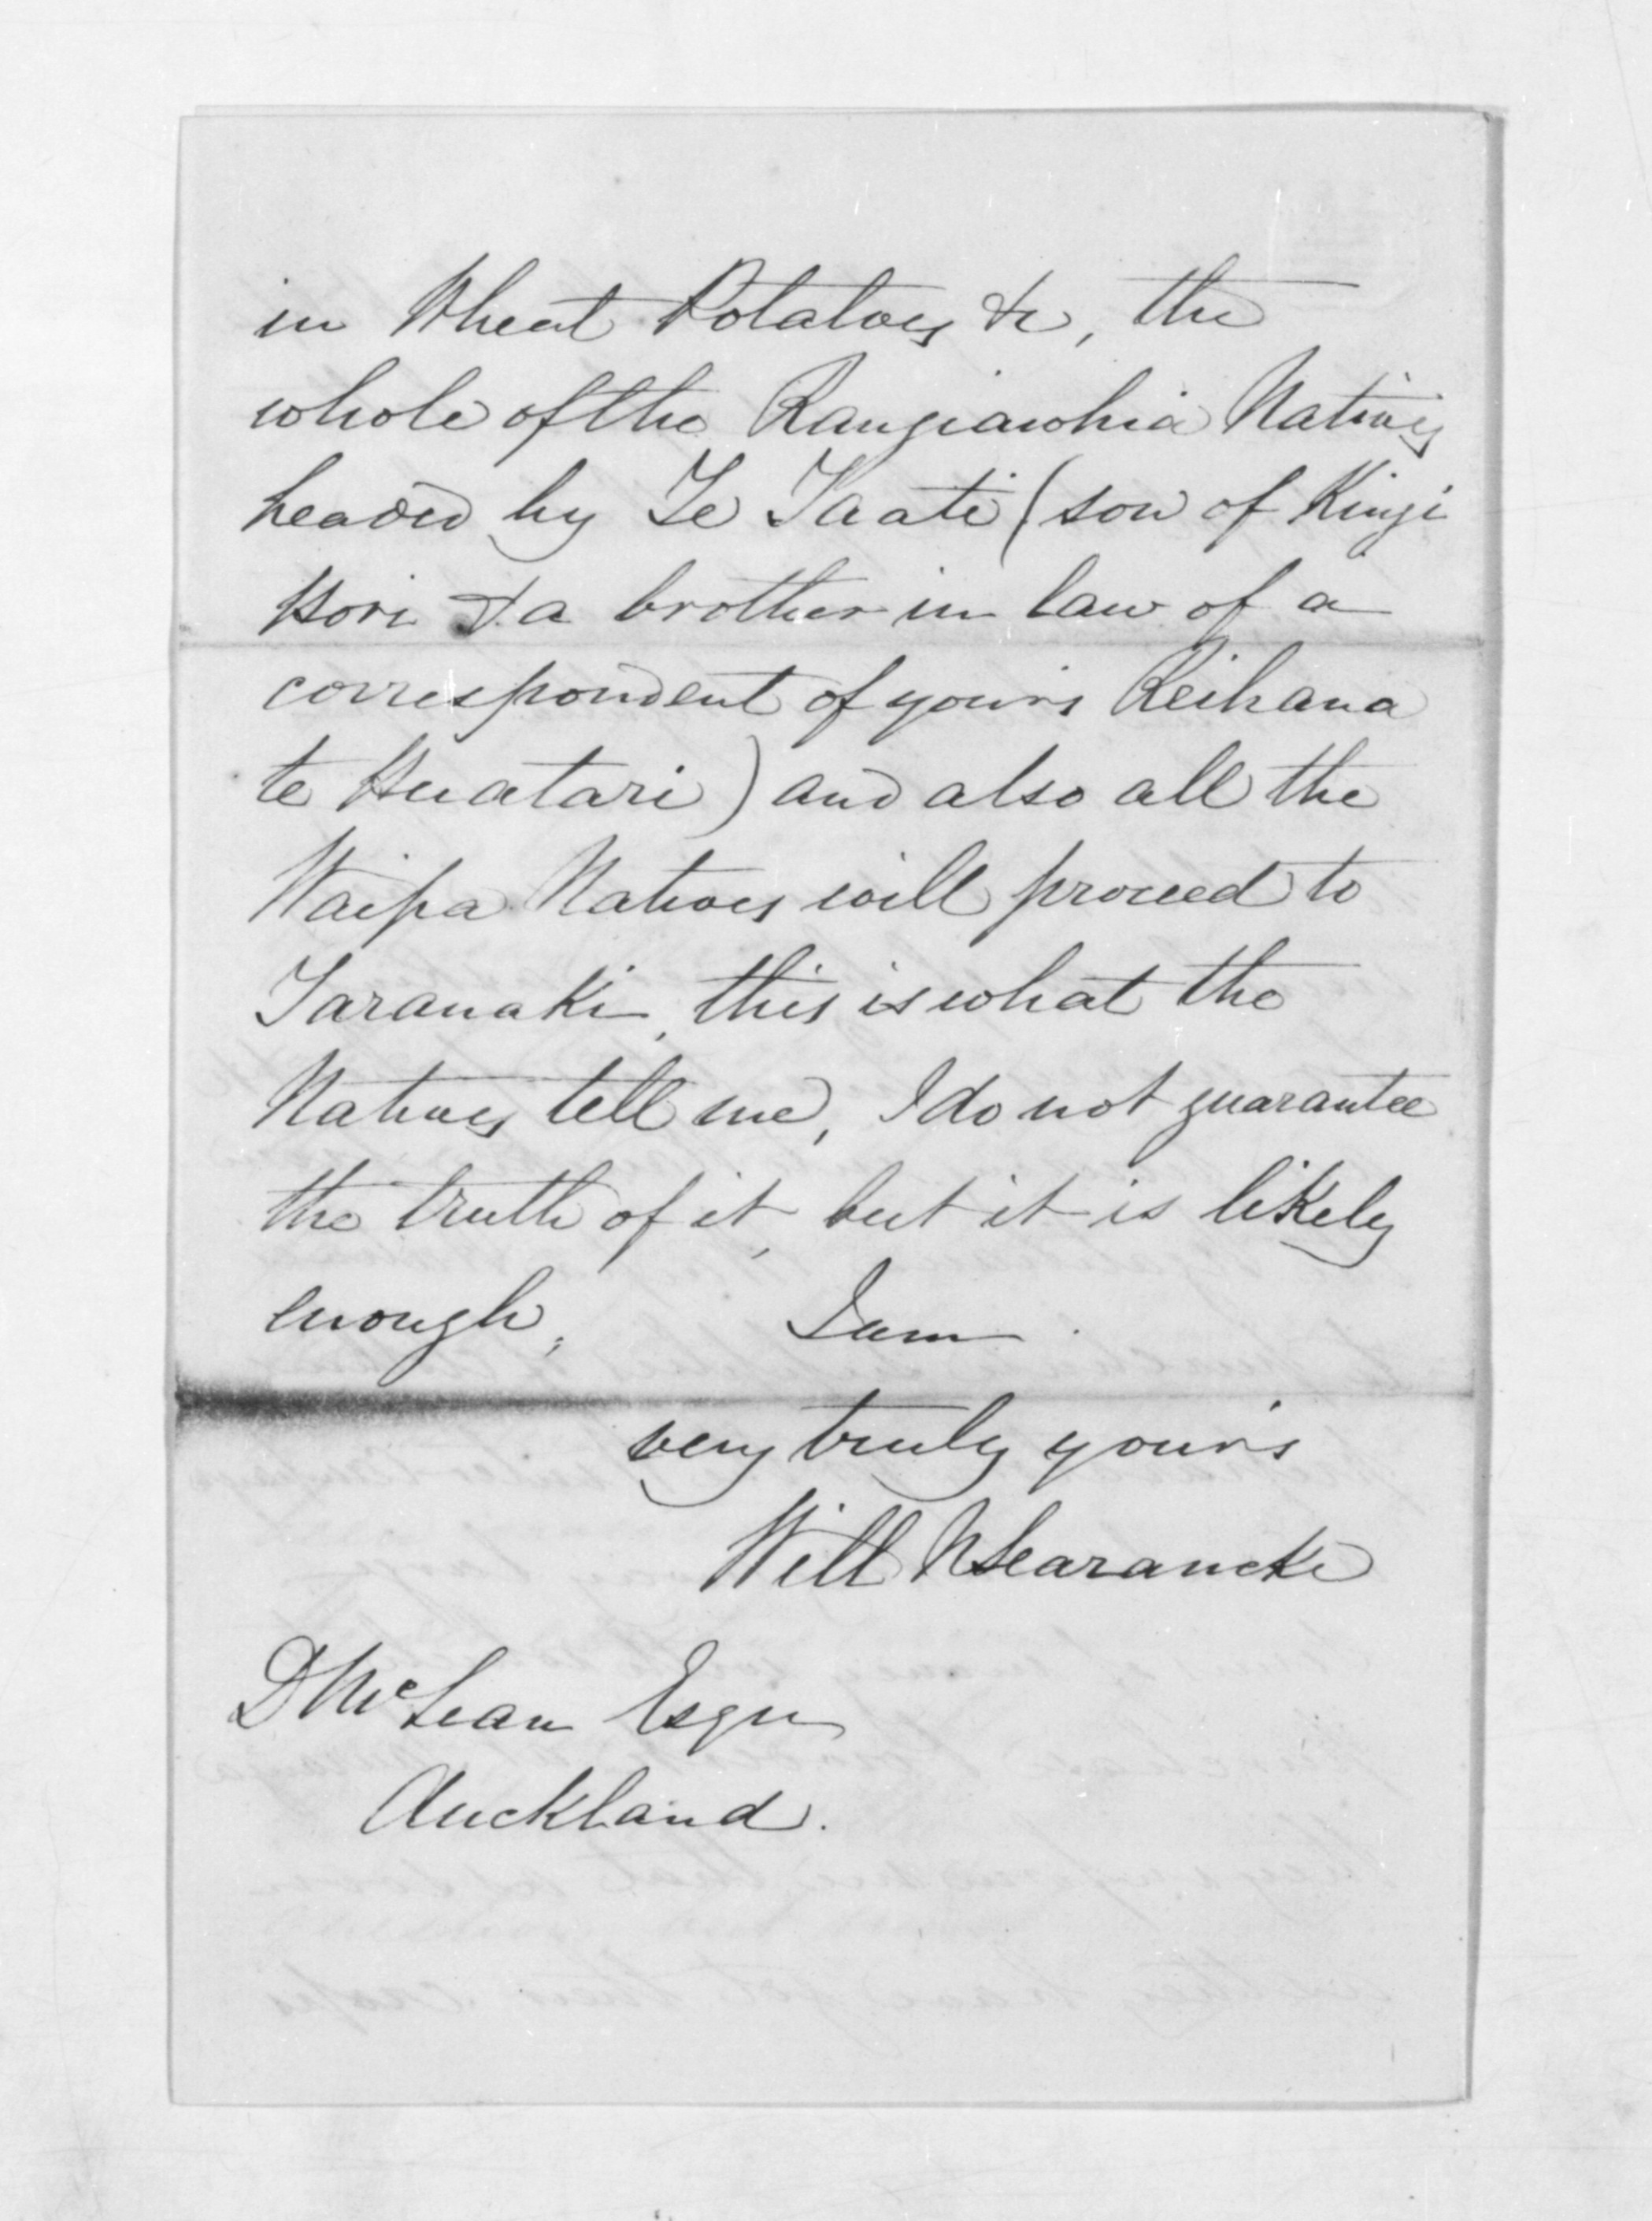 in Wheat Potatoes &c, the
whole of the Rangiawhia Natives
headed by Te Taati (son of Kingi
Hori & a brother in law of a
correspondent of yours Reihana
te Huatari) and also all the
Waipa Natives will proceed to
Taranaki, this is what the
Natives tell me, I do not guarantee
the truth of it, but it is likely
enough, I am
very truly yours
Will N Searancke
D McLean Esqre
Auckland.